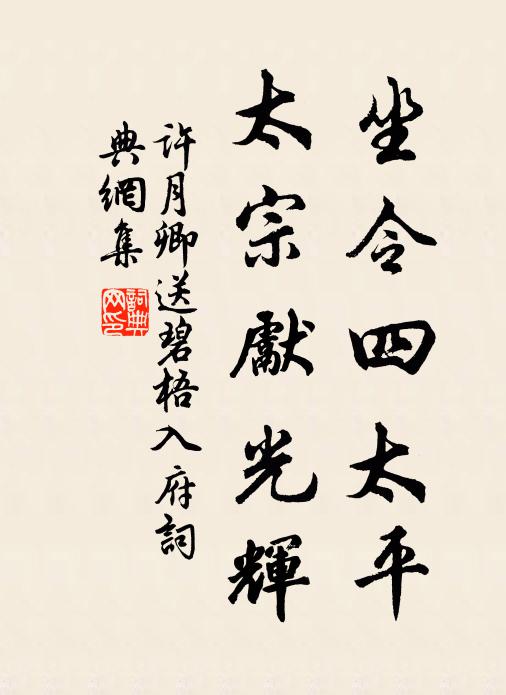 坐令四太平
太宗獻光輝
許月卿送碧梧入府詞
典網集
詞典
网印